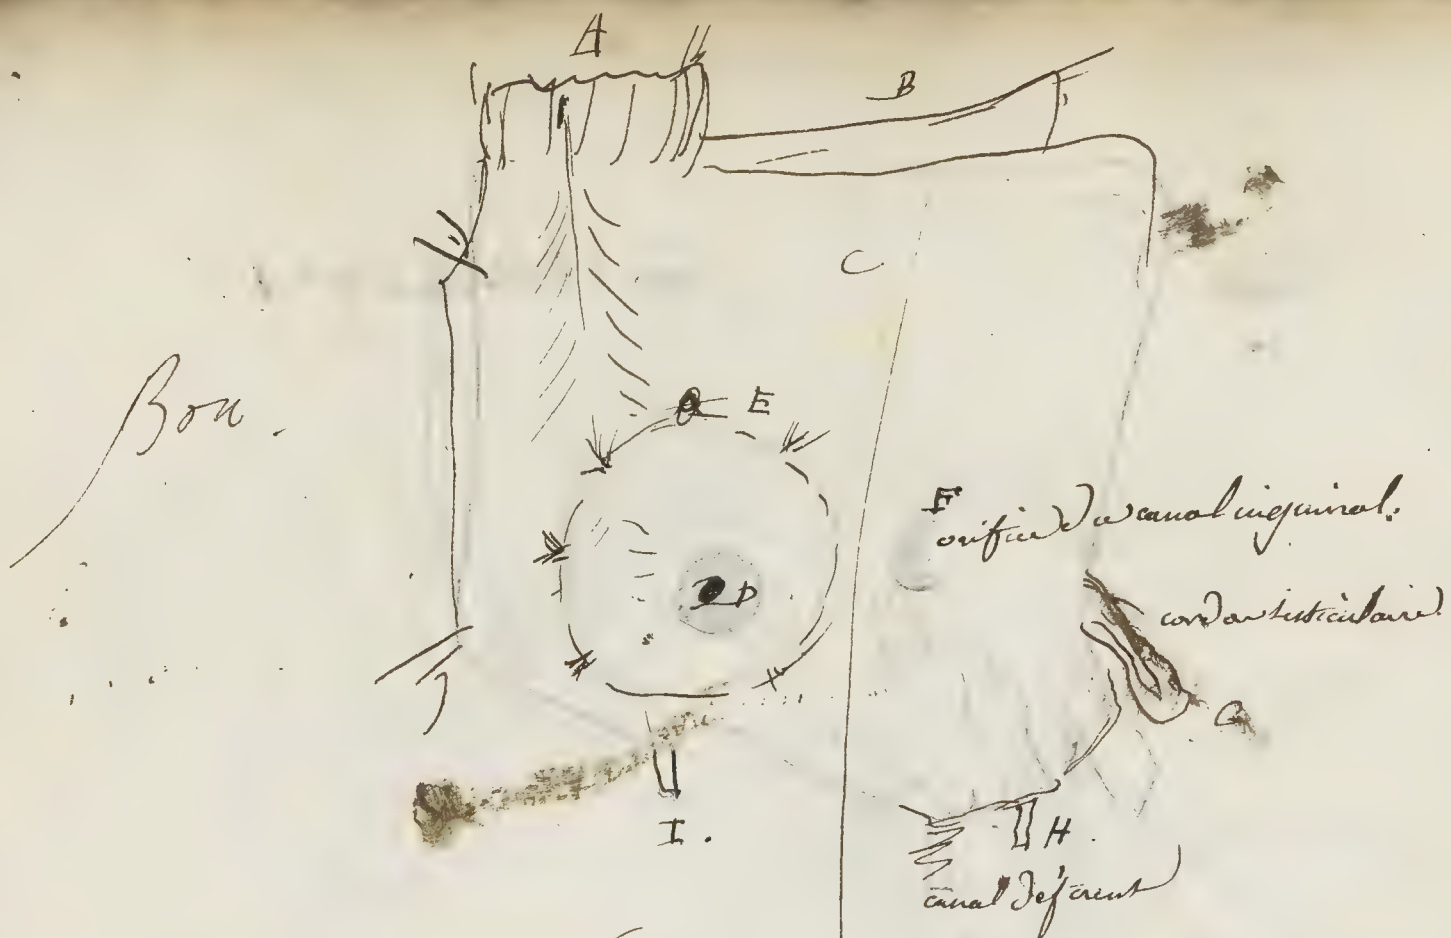 A
B
C
Bon.
E
F
orifice du canal inguinal.
D
cordon testiculaire
G
I.
H.
canal déférent